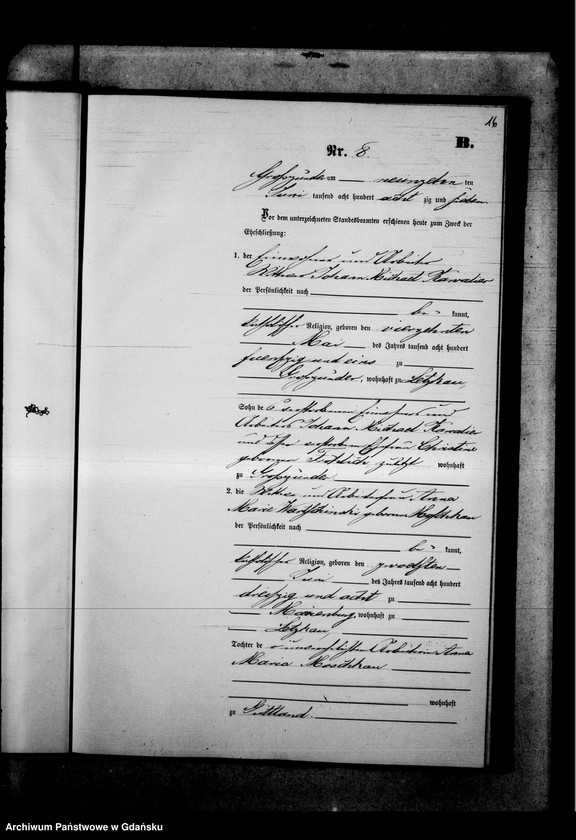 16
B.
Nr. 8.
Großzünder am neunzehn ten
Juni tausend acht hundert acht zig und sieben
Vor dem unterzeichneten Standesbeamten erschienen heute zum Zweck der
Eheschließung:
1. der Einwohner und Arbeiter
Wittwer Johann Michael Karvatier
der Persönlichkeit nach
be- kannt,
katholischer Religion, geboren den vierzehnten
Mai des Jahres tausend acht hundert
fuenfzig und eins zu
Großzünder, wohnhaft zu Letzkau,
Sohn des verstorbenen Einwohner und
Arbeiters Johann Michael
und dessen verstorbenen Ehefrau Christine
geborene zuletzt wohnhaft
zu Großzünder
2. die Wittwe und Arbeiterfrau Anna
Marie geborene Moschkau
der Persönlichkeit nach
be- kannt,
katholischer Religion, geboren den zwoelften
Juni des Jahres tausend acht hundert
dreißzig und acht zu
Marienburg, wohnhaft zu
Letzkau
Tochter der unverehelichten Arbeiterin Anna
Maria Moschkau
wohnhaft
zu Güttland.
Archiwum Państwowe w Gdańsku